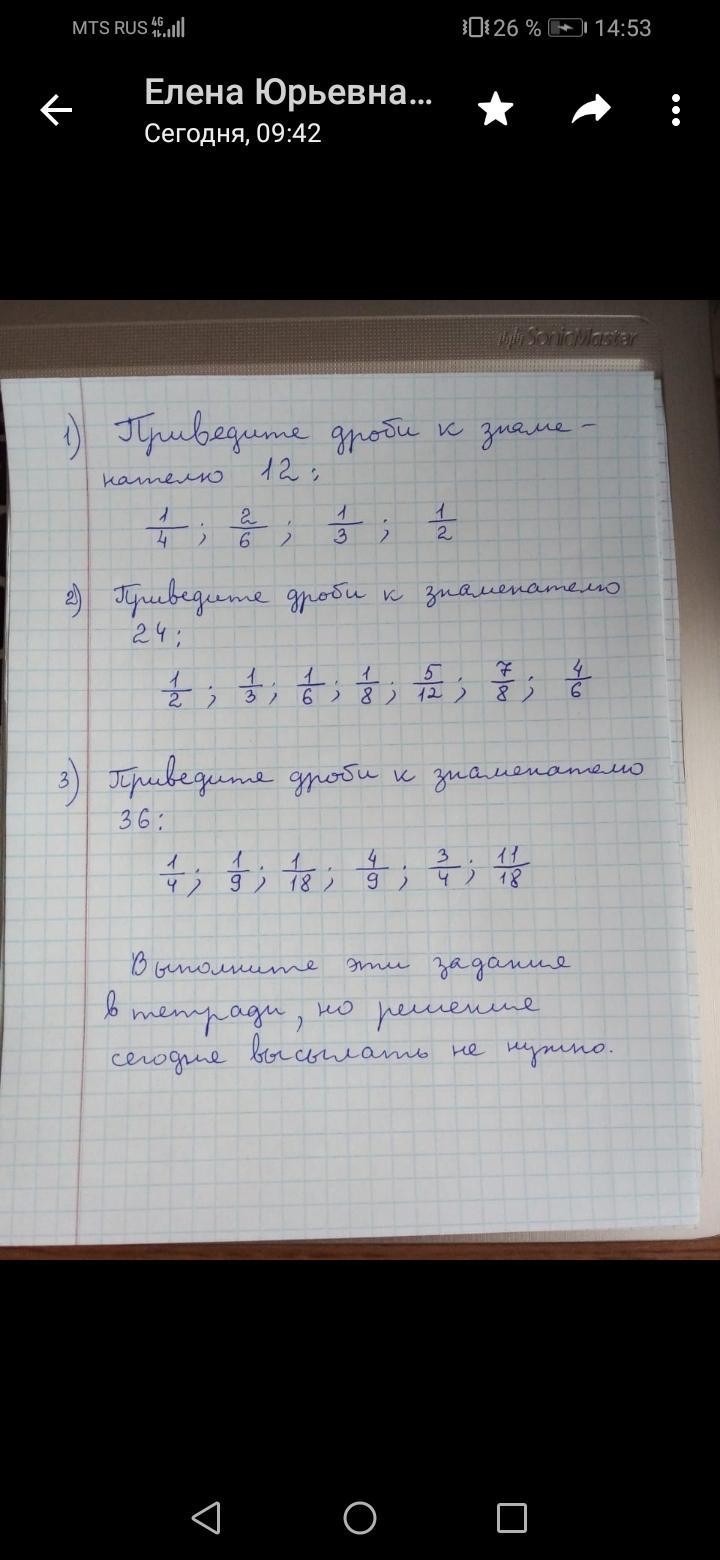 MTS RUS 4G 26 % 14:53
Елена Юрьевна...
Сегодня, 09:42
SonicMaster
1) Приведите дроби к знаме-
нателю 12:
1/4 ; 2/6 ; 1/3 ; 1/2
2) Приведите дроби к знаменателю
24:
1/2 ; 1/3 ; 1/6 ; 1/8 ; 5/12 ; 7/8 ; 4/6
3) Приведите дроби к знаменателю
36:
1/4 ; 1/9 ; 1/18 ; 4/9 ; 3/4 ; 11/18
Выполните эти задания
в тетради, но решение
сегодня высылать не нужно.